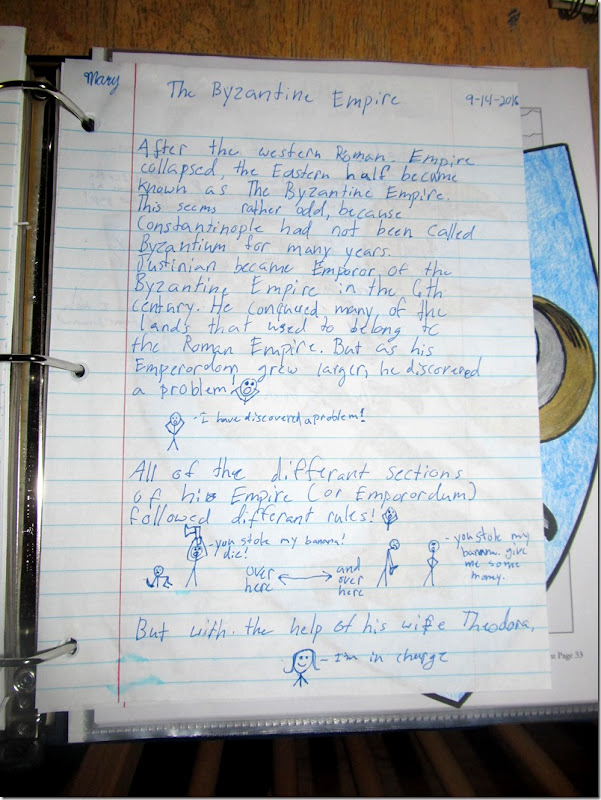 Mary
The Byzantine Empire
9-14-2016
After the western Roman. Empire
collapsed, the Eastern half became
known as The Byzantine Empire.
This seems rather odd, because
Constantinople had not been called
Byzantium for many years.
Justinian became Emporor of the
Byzantine Empire in the 6th
century. He conquered many of the
lands that used to belong to
the Roman Empire. But as his
Emperordom grew larger, he discovered
a problem!
-I have discovered a problem!
All of the different sections
of his Empire (or Emporordum)
followed different rules!
-you stole my banana!
die!
over
here
and
over
here
-you stole my
banana. give
me some
money.
But with. the help of his wife Theodora,
-I'm in charge
Page 33